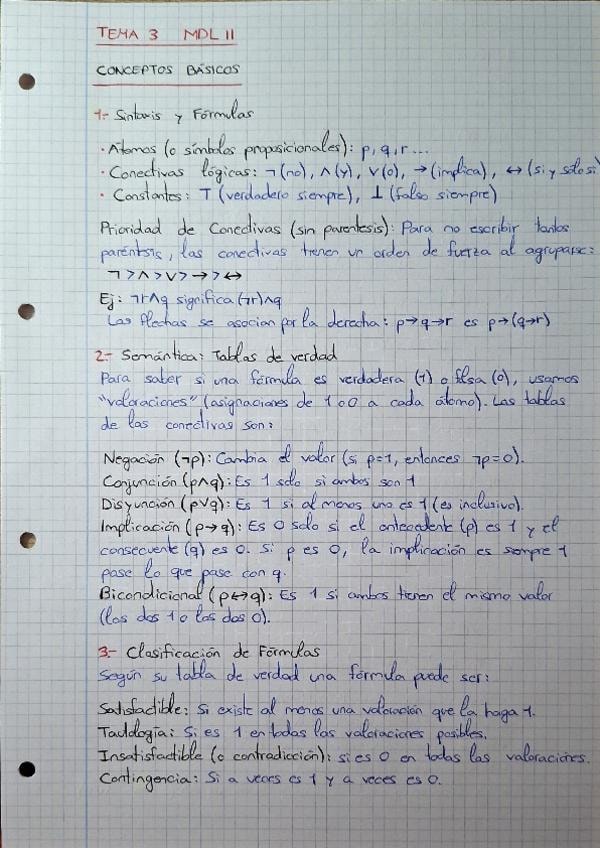 TEMA 3 MDL II
CONCEPTOS BÁSICOS
1.- Sintaxis y Fórmulas
· Átomos (o símbolos proposicionales): p, q, r ...
· Conectivas lógicas: ¬ (no), ∧ (y), ∨ (o), → (implica), ↔ (si y solo si)
· Constantes: ⊤ (verdadero siempre), ⊥ (falso siempre)
Prioridad de Conectivas (sin parentesis): Para no escribir tantos
paréntsis, las conectivas tienen un orden de fuerza al agruparse:
¬ > ∧ > ∨ > → > ↔
Ej: ¬r∧q significa (¬r)∧q
Las flechas se asocian por la derecha: p→q→r es p→(q→r)
2.- Semántica: Tablas de verdad
Para saber si una fórmula es verdadera (1) o falsa (0), usamos
"valoraciones" (asignaciones de 1 o 0 a cada átomo). Las tablas
de las conectivas son:
Negación (¬p): Cambia el valor (si p=1, entonces ¬p=0).
Conjunción (p∧q): Es 1 solo si ambos son 1
Disyunción (p∨q): Es 1 si al menos uno es 1 (es inclusivo).
Implicación (p→q): Es 0 solo si el antecedente (p) es 1 y el
consecuente (q) es 0. Si p es 0, la implicación es siempre 1
pase lo que pase con q.
Bicondicional (p↔q): Es 1 si ambos tienen el mismo valor
(los dos 1 o los dos 0).
3.- Clasificación de Fórmulas
Según su tabla de verdad una fórmula puede ser:
Satisfactible: Si existe al menos una valoración que la haga 1.
Tautología: Si es 1 en todas las valoraciones posibles.
Insatisfactible (o contradicción): si es 0 en todas las valoraciones.
Contingencia: Si a veces es 1 y a veces es 0.